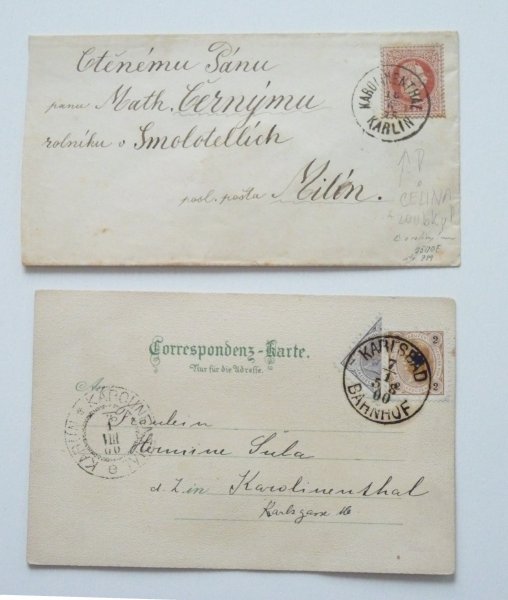 Ctěnému Pánu
panu Math. Černýmu
rolníku v Smolotellích
posl. pošta Milín.
KAROLINENTHAL
KARLIN
Correspondenz-Karte.
Nur für die Adresse.
An
KARLSBAD
7
00
BAHNHOF
2 2
KAROLINENTHAL
KARLIN
VIII
00
e
Fräulein
Hermine Šula
d. Z. in Karolinenthal
Karlsgasse 16